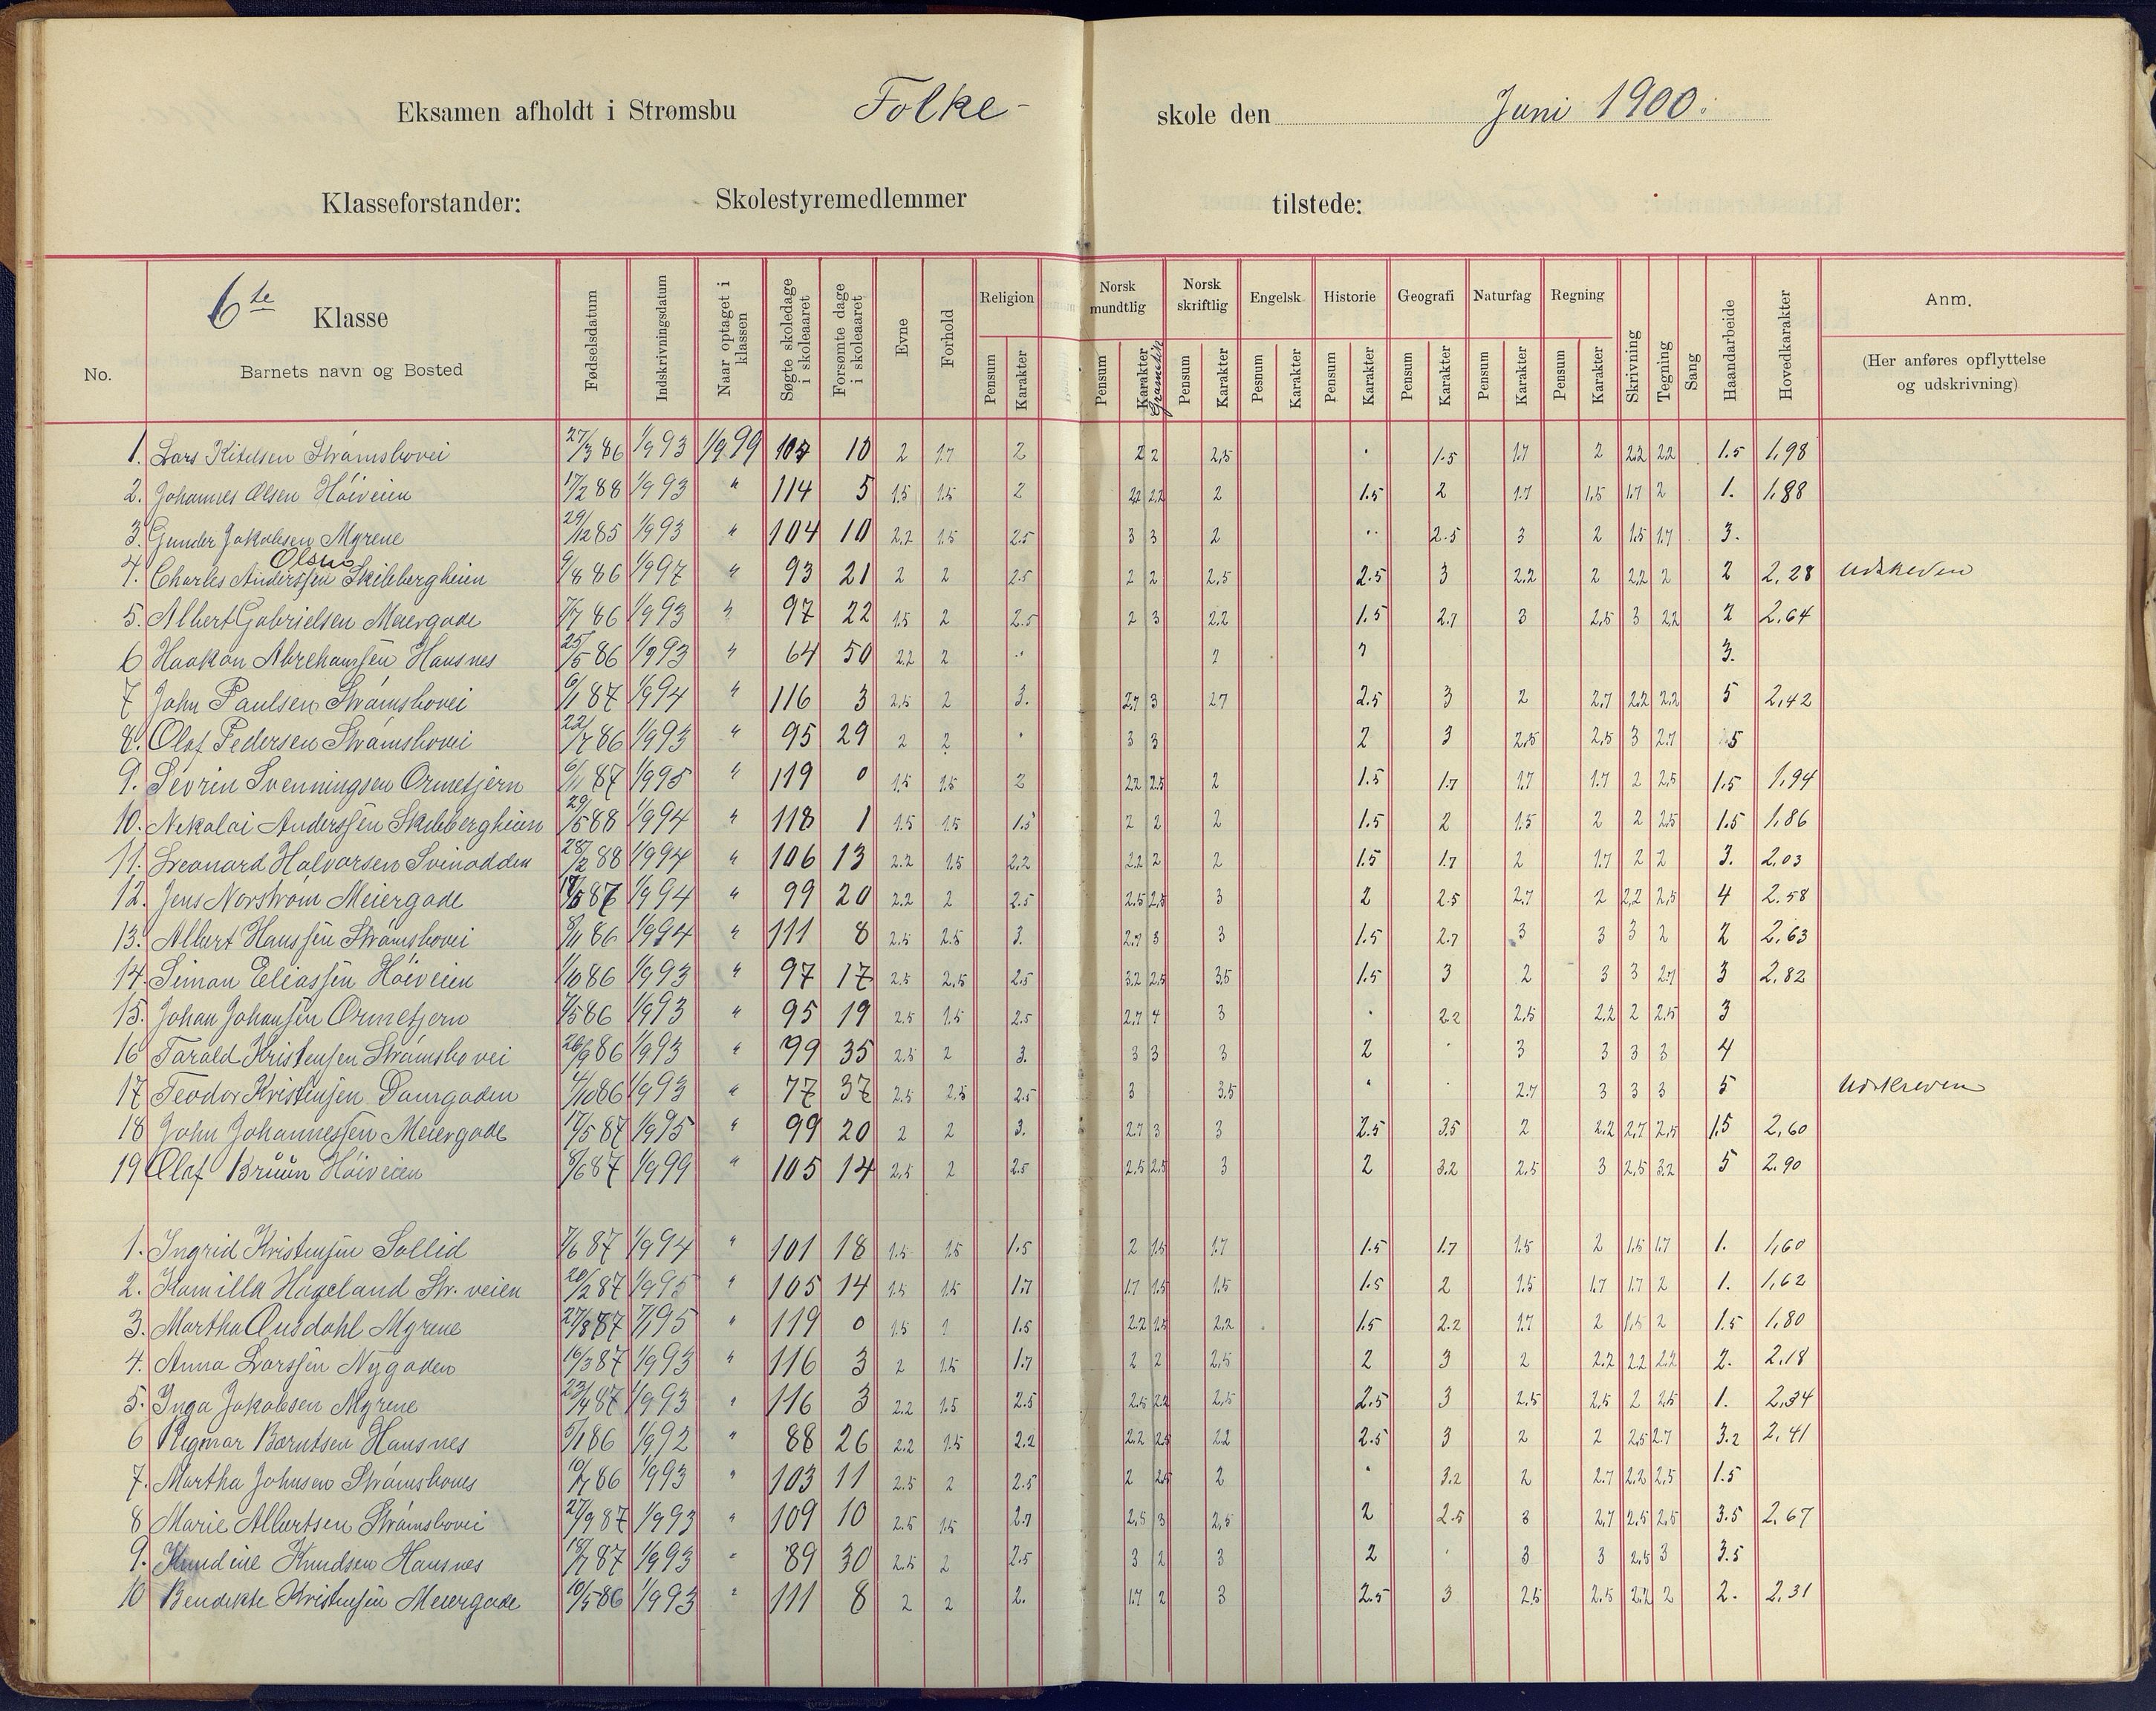 Eksamen afholdt i Strømsbu Folke- skole den Juni 1900.
Klasseforstander: Skolestyremedlemmer tilstede:
No. 6te Klasse Barnets navn og Bosted Fødselsdatum Indskrivningsdatum Naar optaget i klassen Søgte skoledage i skoleaaret Forsømte dage i skoleaaret Evne Forhold Religion Pensum Karakter Norsk mundtlig Pensum Karakter Norsk skriftlig Pensum Karakter Engelsk Pesnum Karakter Historie Pensum Karakter Geografi Pensum Karakter Naturfag Pensum Karakter Regning Pensum Karakter Skrivning Tegning Sang Haandarbeide Hovedkarakter Anm. (Her anføres opflyttelse og udskrivning)
1. Lars Kitelsen Strømsbovei 27/3 86 1/9 93 1/9 99 10 2 1.7 2 2 2 2,5 1.5 1.7 2 2.2 2.2 1.5 1,98
2. Johannes Olsen Høiveien 17/2 88 1/9 93 " 114 5 1.5 1.5 2 2.2 2.2 2 1.5 2 1.7 1,5 1.7 2 1. 1,88
3. Gunder Jakobsen Myrene 29/12 85 1/9 93 " 104 10 2.2 1.5 2.5 3 3 2 2.5 3 2 1.5 1.7 3.
4. Charles Anderssen Olsen Skilebergheien 9/8 86 1/9 97 " 93 21 2 2 2.5 2 2 2,5 2.5 3 2.2 2 2.2 2 2 2,28 Udskreven
5. Albert Gabrielsen Meiergade 7/7 86 1/9 93 " 97 22 1.5 2 2.5 2 3 2.2 1.5 2.7 3 2,5 3 2.2 2 2,64
6 Haakon Abrehamsen Hausnes 25/5 86 1/9 93 " 64 50 2.2 2 3.
7 John Paulsen Strømsbovei 6/1 87 1/9 94 " 116 3 2.5 2 3. 2.7 3 2.7 2.5 3 2 2.7 2.2 2.2 5 2,42
8. Olaf Pedersen Strømsbovei 22/7 86 1/9 93 " 95 29 2 2 3 3 2 3 2.5 2.5 3 2.7
9. Sevrin Svenningsen Ormetjern 6/11 87 1/9 95 " 119 0 1.5 1.5 2 2.2 2.5 2 1.5 1.7 1.7 1.7 2 2,5 1.5 1,94
10. Nekolai Anderssen Skilebergheien 29/5 88 1/9 94 " 118 1 1.5 1.5 1.5 2 2 2 1.5 2 1.5 2 2 2.5 1.5 1,86
11. Leonard Halvorsen Svinodden 28/2 88 1/9 94 " 106 13 2.2 1.5 2,2 2.2 2 2 1.5 1.7 2 1.7 2 2 3. 2,03
12. Jens Norstrøm Meiergade 87 1/9 94 " 99 20 2.2 2 2.5 2.5 2,5 3 2 2.5 2.7 2 2,2 2,5 4 2.58
13. Albert Hanssen Strømsbovei 8/11 86 1/9 94 " 111 8 2.5 2.5 3. 2.7 3 3 1.5 2.7 3 3 3 2 2 2,63
14. Simon Eliassen Høiveien 1/10 86 1/9 93 " 97 17 2.5 2,5 2.5 3.2 2.5 3.5 1.5 3 2 3 3 2.7 3 2,82
15. Johan Johansen Ormetjern 7/5 86 1/9 93 " 95 19 2.5 1.5 2.5 2.7 4 3 2.2 2.5 2.2 2 2.5 3
16 Tarald Kristensen Strømsbovei 26/9 86 1/9 93 " 99 35 2.5 2 3. 3 3 3 2 3 3 3 3 4
17 Teodor Kristensen Damgaden 4/10 86 1/9 93 " 77 37 2.5 2.5 2.5 3 3.5 2.7 3 3 3 5 Udskreven
18 John Johannessen Meiergade 17/5 87 1/9 95 " 99 20 2 2 3. 2.7 3 3 2.5 3.5 2 2.2 2,7 2,5 1.5 2,60
19 Olaf Bruun Høiveien 8/6 87 1/9 99 " 105 14 2.5 2 2.5 2.5 2.5 3 2 3.2 2.5 3 2,5 3.2 5 2.90
1. Ingrid Kristensen Sollid 7/6 87 1/9 94 " 101 18 1.5 1.5 1.5 2 1.5 1.7 1.5 1.7 1.5 2 1.5 1.7 1. 1,60
2. Kamilla Hageland Str. veien 20/2 87 1/9 95 " 105 14 1.5 1.5 1.7 1.7 1.5 1.5 1.5 2 1.5 1.7 1.7 2 1. 1,62
3. Martha Ausdahl Myrene 27/8 87 7/1 95 " 119 0 1.5 1 1.5 2.2 1.5 2,2 1.5 2.2 1.7 2 1.5 2 1.5 1,80
4. Anna Larssen Nygaden 16/3 87 1/9 93 " 116 3 2 1.5 1.7 2 2 2,5 2 3 2 2.2 2.2 2.2 2. 2,18
5. Inga Jakobsen Myrene 23/4 87 1/9 93 " 116 3 2.2 1.5 2.5 2.5 2.2 2,5 2.5 3 2.5 2,5 2 2.5 1. 2,34
6 Regmar Berntsen Hausnes 5/1 86 1/9 92 " 88 26 2.2 1.5 2.2 2.2 2.5 2.2 2.5 3 2 2 2,5 2.7 3.2 2,41
7. Martha Johnsen Strømsbovei 10/7 86 1/9 93 " 103 11 2.5 2 2.5 2 2.5 2 3.2 2 2.7 2.2 2.5 1.5
8 Marie Albertsen Strømsbovei 27/9 87 1/9 93 " 109 10 2.5 1.5 2.7 2,5 3 2,5 2 2.5 3 2,7 2.5 2.5 3.5 2,67
9. Knudine Knudsen Hausnes 18/7 87 1/9 93 " 89 30 2.5 2 2.5 3 2 3 2 3 3 2.5 3 3.5
10 Bendikte Kristensen Meiergade 10/5 86 1/9 93 " 111 8 2 2 2. 1.7 2 3 2.5 3 2.5 2.5 2.2 2 2. 2,31